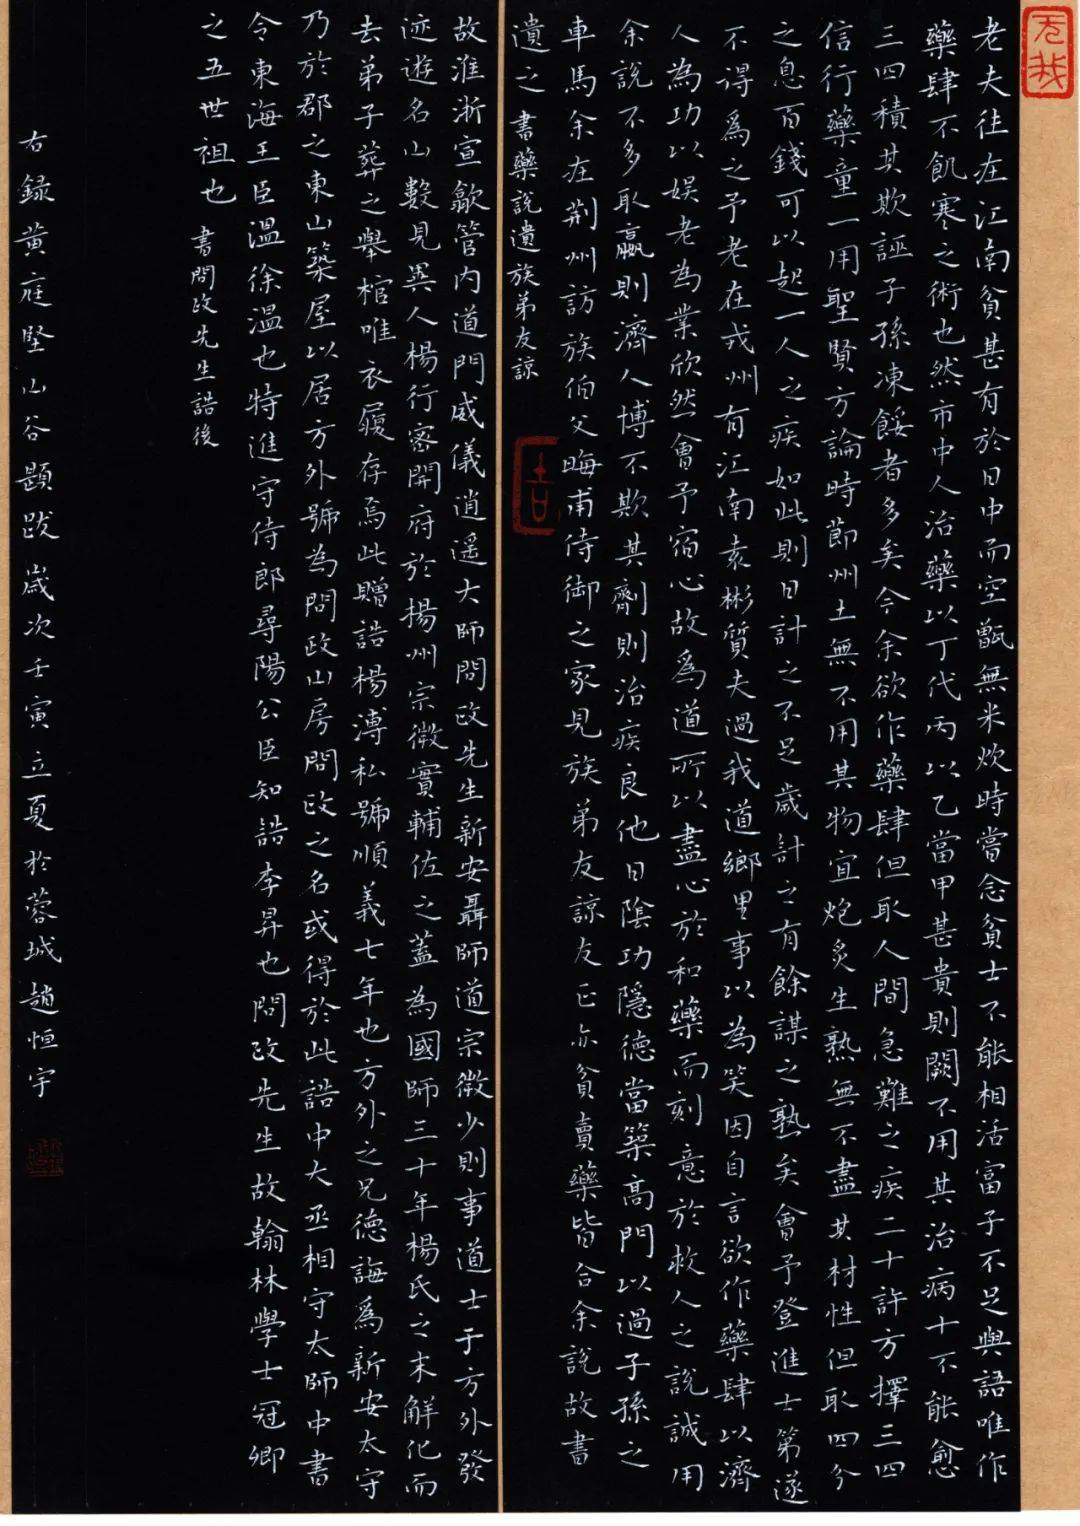 老夫往在江南貧甚有於日中而空甑無米炊時嘗念貧士不能相活富子不足與語唯作
藥肆不飢寒之術也然市中人治藥以丁代丙以乙當甲甚貴則闕不用其治病十不能愈
三四積其欺誣子孫凍餒者多矣今余欲作藥肆但取人間急難之疾二十許方擇三四
信行藥童一用聖賢方論時節州土無不用其物宜炮炙生熟無不盡其材性但取四分
之息百錢可以起一人之疾如此則日計之不足歲計之有餘謀之熟矣會予登進士第遂
不得為之予老在戎州有江南袁彬質夫過我道鄉里事以為笑因自言欲作藥肆以濟
人為功以娛老為業欣然會予宿心故為道所以盡心於和藥而刻意於救人之說誠用
余說不多取贏則濟人博不欺其劑則治疾良他日陰功隱德當築高門以過子孫之
車馬余在荆州訪族伯父晦甫侍御之家見族弟友諒友正亦貧賣藥皆合余說故書
遺之 書藥說遺族弟友諒
故淮浙宣歙管內道門威儀逍遥大師問政先生新安聶師道宗微少則事道士于方外發
迹遊名山數見異人楊行密開府於揚州宗微實輔佐之蓋為國師三十年楊氏之末解化而
去弟子葬之舉棺唯衣履存焉此贈誥楊溥私號順義七年也方外之兄德誨為新安太守
乃於郡之東山築屋以居方外號為問政山房問政之名或得於此誥中大丞相守太師中書
令東海王臣溫徐溫也特進守侍郎尋陽公臣知誥李昇也問政先生故翰林學士冠卿
之五世祖也 書問政先生誥後
右錄黃庭堅山谷題跋歲次壬寅立夏於蓉城趙恒宇